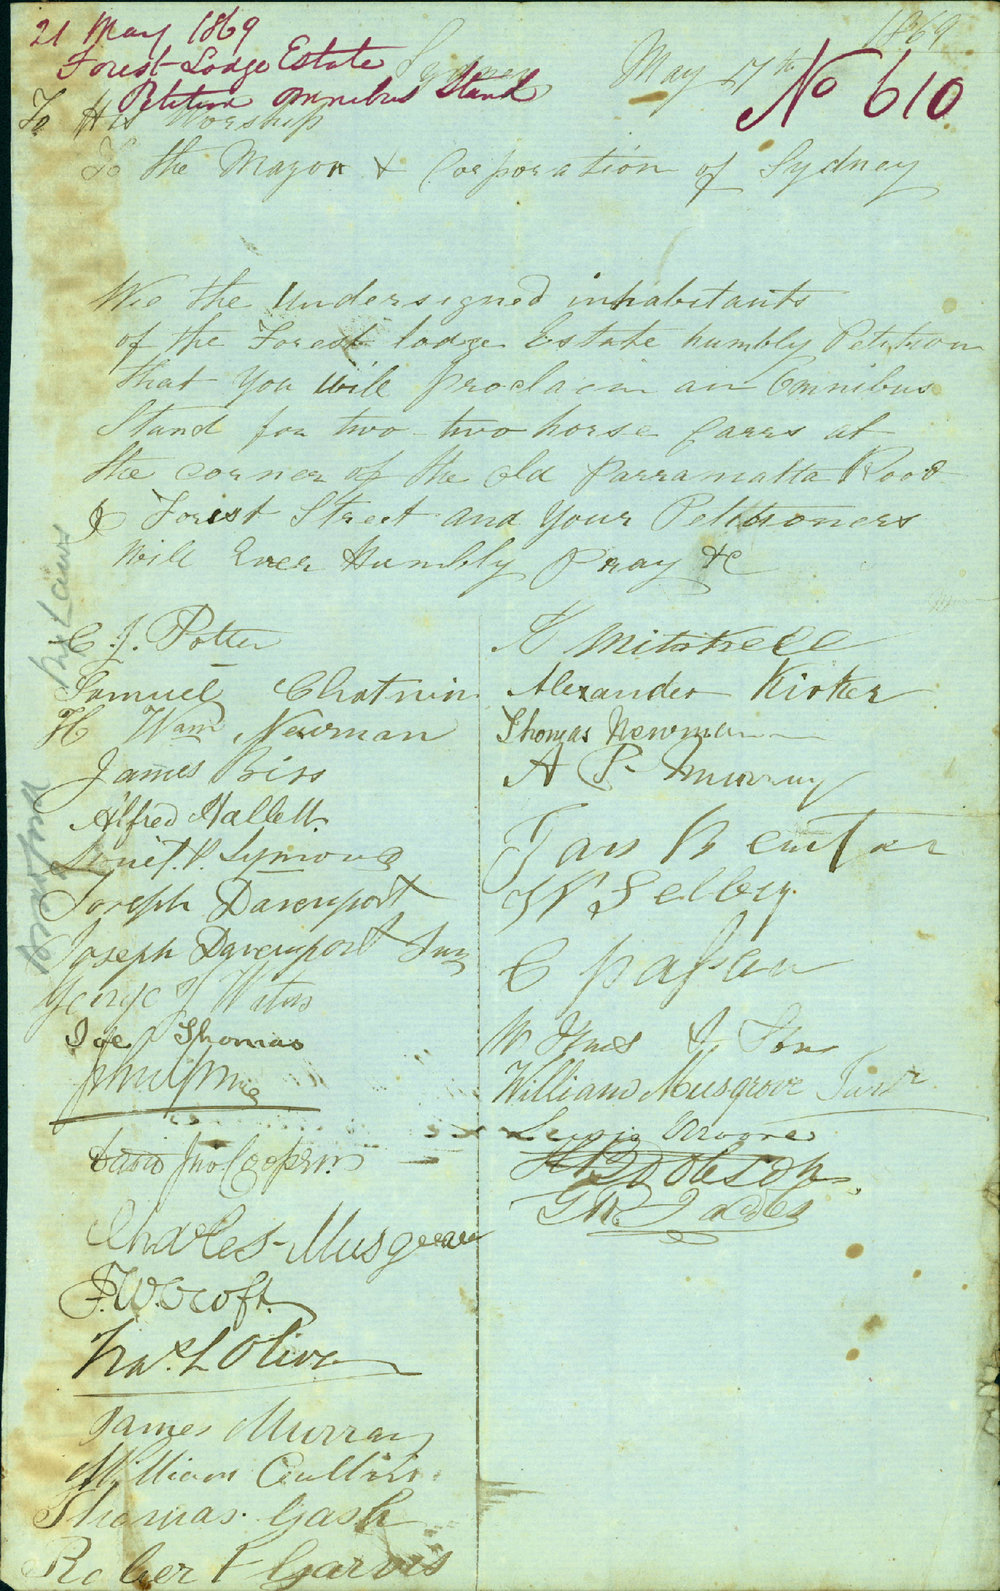 21 May 1869
Forest Lodge Estate
Petition omnibus Stand
No 610
Sydney May 17th 1869
To His Worship
To the Mayor & Corporation of Sydney
We the Undersigned inhabitants
of the Forest lodge Estate humbly Petition
that you will proclaim an Omnibus
Stand for two-two horse Carrs at
the corner of the old Parramatta Road
& Forest Street and your Petitioners
Will Ever Humbly Pray &c
C. J. Potter
Samuel
H Wam Newman
James Briss
Alfred Hallett
P. Symons
Joseph Davenport
Joseph Davenport Jun
George J Waters
Joe Thomas
Jno Cooper
Charles Musgrave
F. W. Croft
Thos. L Oliver
James Murray
William
Thomas Gash
Robert Garvis
Mitchell
Alexander Kirker
Thomas Newman
A P. Murray
Jas
W Selby
C
W & Son
William Musgrove Junr
Moore
H Dobeson
Bye Laws